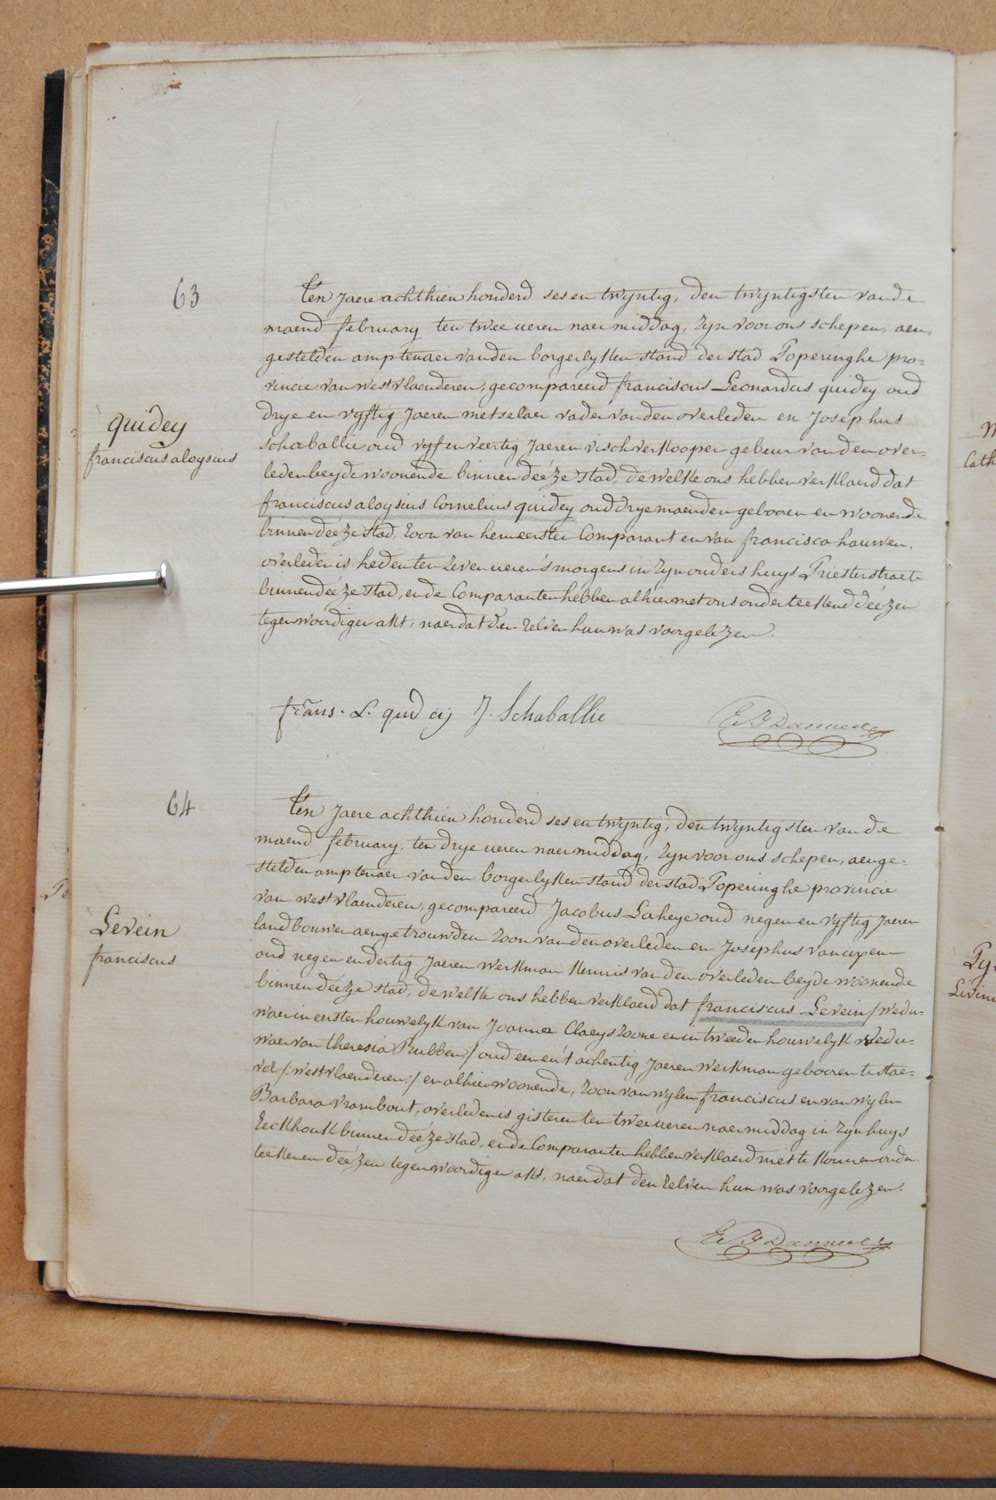 63
Ten Jaere achthien honderd ses en twijntig, den twijntigsten van de
maend february ten twee ueren naer middag, Zijn voor ons schepen, aen-
gestelden amptenaer van den borgerlyken stand der stad Poperinghe pro-
vincie van westvlaenderen, gecompareerd franciscus Leonardus quidey oud
drye en vyftig Jaeren metselaer vader van den overleden en Josephus
schaballie oud vyf en veertig Jaeren vischverkooper gebeur van den over-
leden beyde woonende binnen deéze stad, de welke ons hebben verklaerd dat
quidey
franciscus aloysius
franciscus aloysius Cornelius quidey oud drye maenden gebooren en woonende
binnen deéze stad, Zoon van hem eersten Comparant en van francisca hauwen.
overleden is heden ten Zeven ueren s'morgens in Zyn ouders huys Priesterstraete
binnen deéze stad, en de Comparanten hebben alhier met ons onderteekend deézen
tegenwoordigen akt, naer dat den Zelven hun was voorgelezen.
frans. L. quideij J. Schaballie
64
Ten Jaere achthien honderd ses en twijntig, den twijntigsten van de
maend february, ten drye ueren naer middag, Zijn voor ons schepen, aenge-
stelden amptenaer van den borgerlyken stand der stad Poperinghe provincie
van westvlaenderen, gecompareerd Jacobus Laheye oud negen en vyftig Jaeren
landbouwer aengetrouwden Zoon van den overleden en Josephus
oud negen en dertig Jaeren werkman kennis van den overleden beyde woonende
binnen deéze stad, de welke ons hebben verklaerd dat franciscus Levein /wedu-
Levein
franciscus
waer in eersten houwelyk van Joanna Claeys Zoone en in tweeden houwelyk wedu-
waer van theresia Rubben/ oud een en't achentig Jaeren werkman gebooren te Stae-
vele /:westvlaenderen:/ en alhier woonende, Zoon van wylen franciscus en van wylen
Barbara vrambout, overleden is gisteren ten twee ueren naer middag in Zyn huys
Eeckhoutk binnen deéze stad, en de Comparanten hebben verklaerd niet te konnen onder-
teekenen deézen tegenwoordigen akt, naer dat den Zelven hun was voorgelezen.